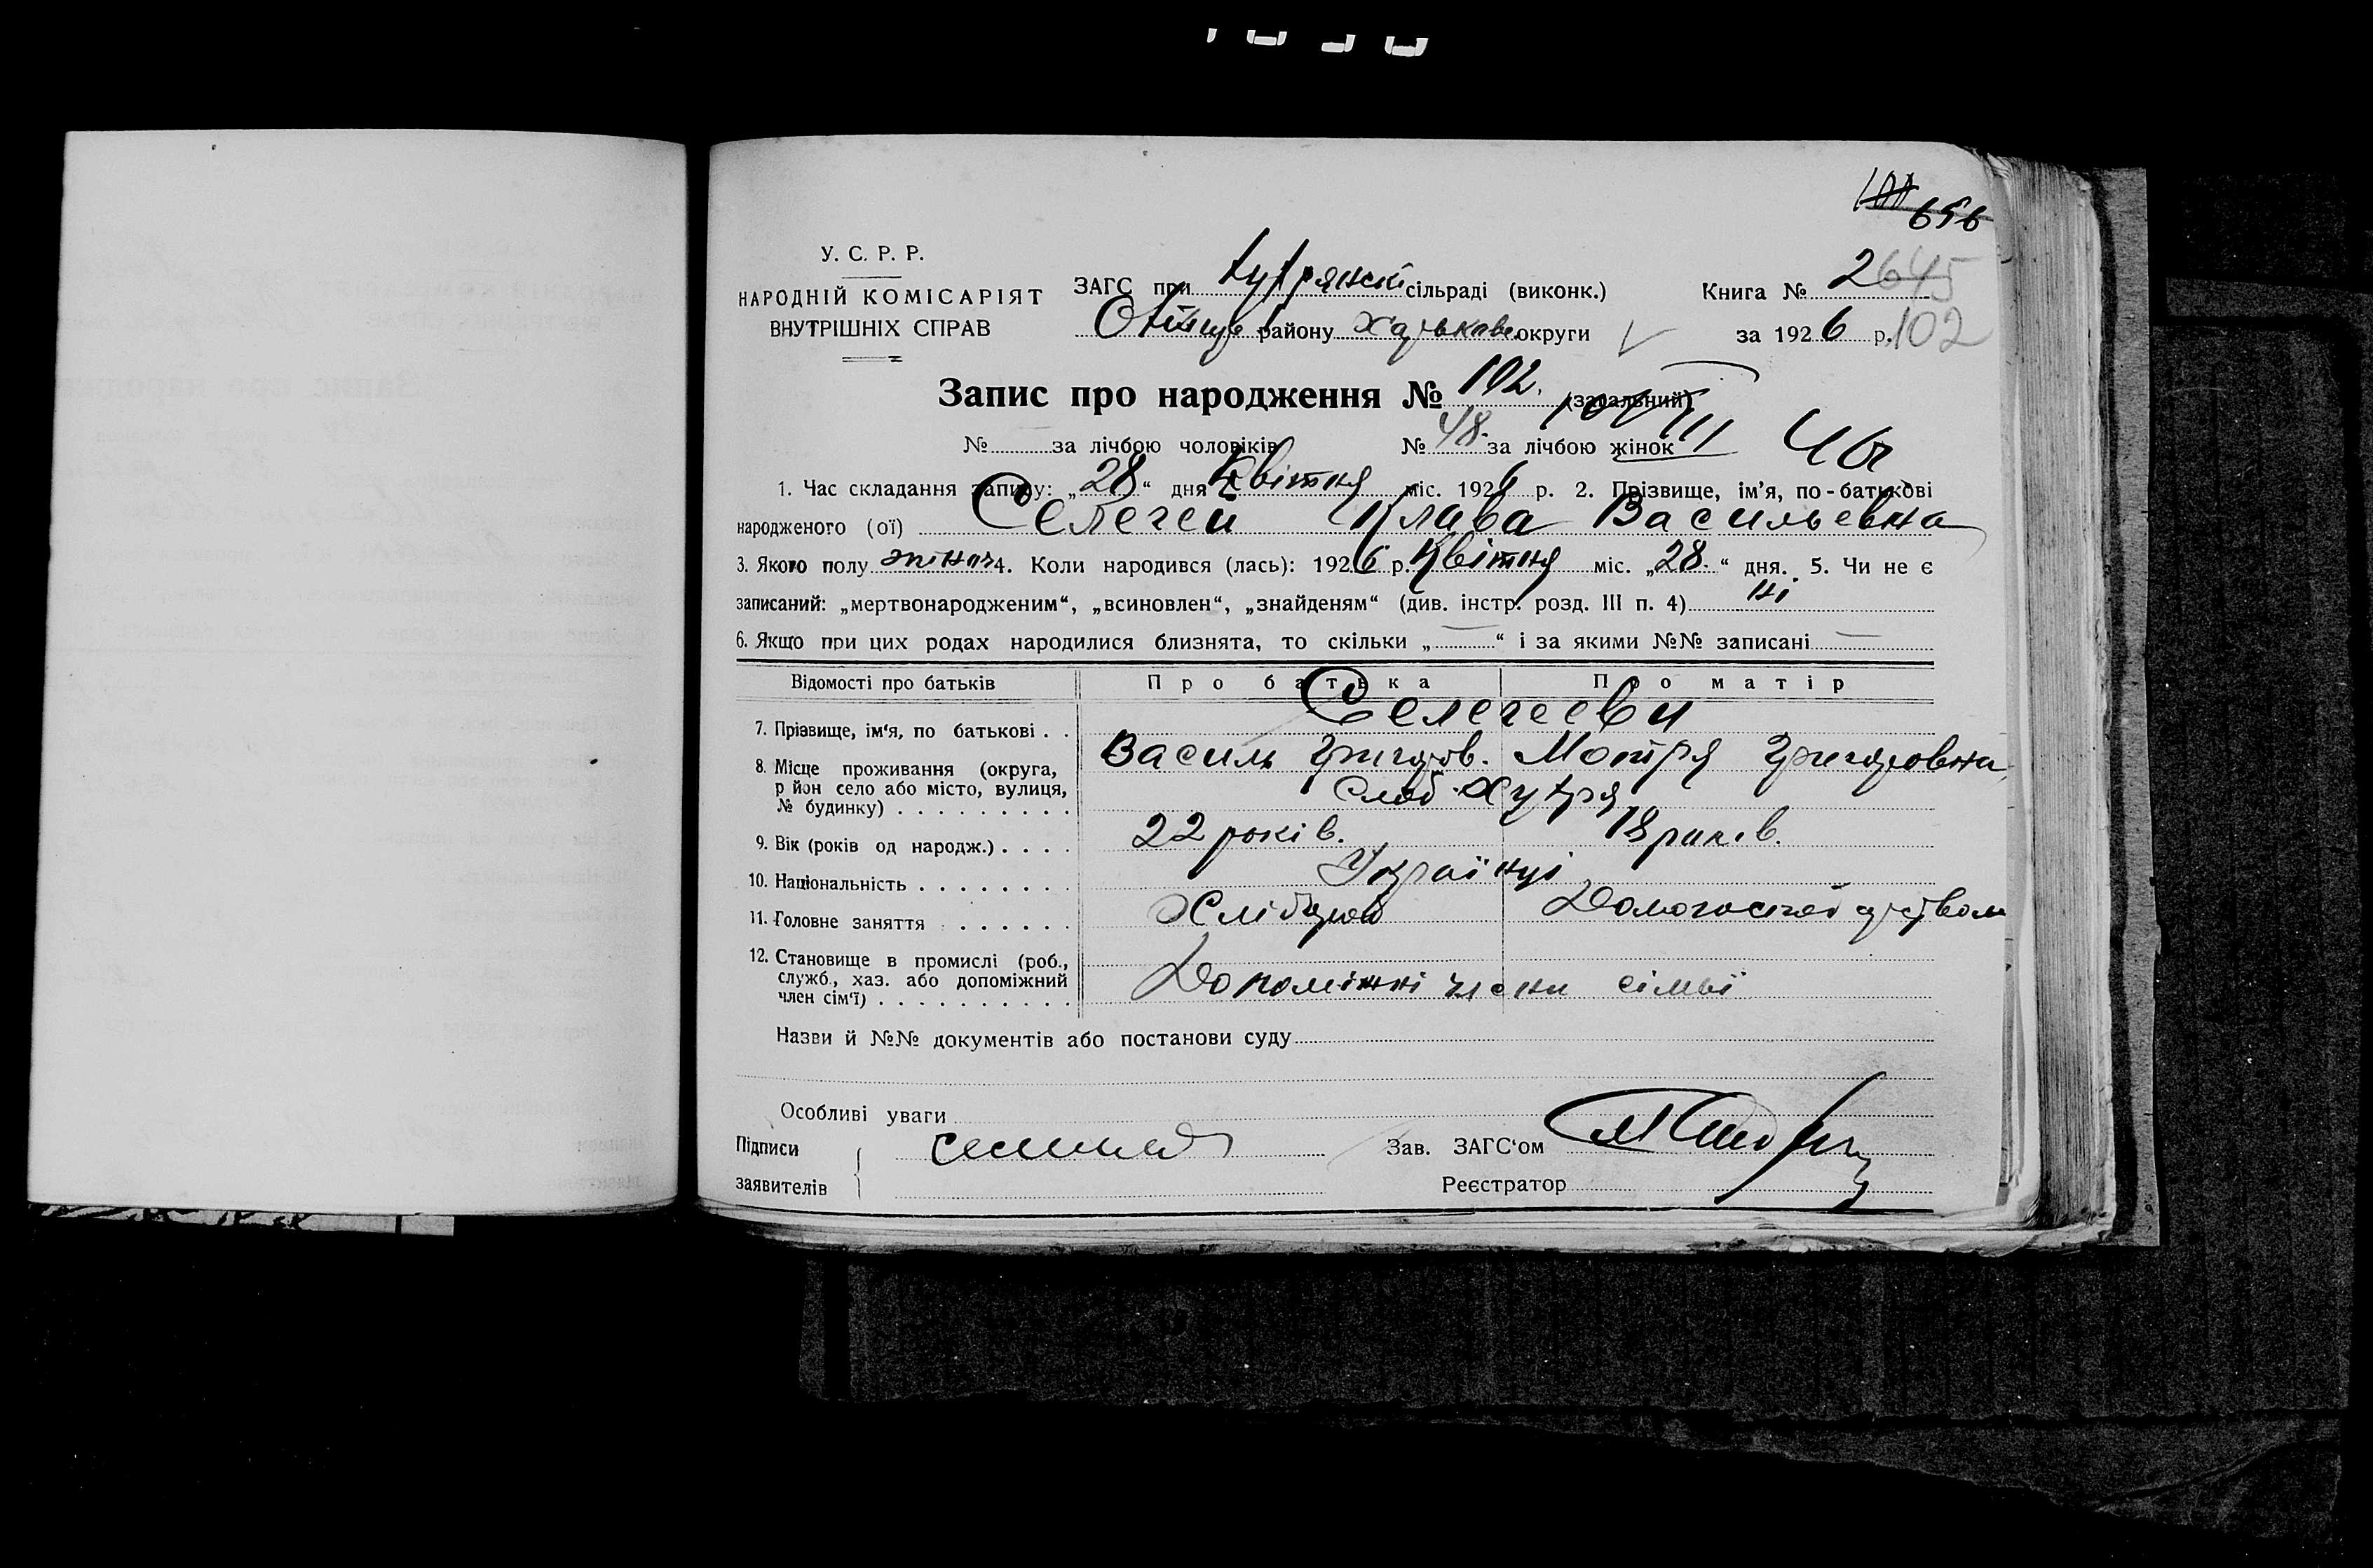 656
У. С. Р. Р.
НАРОДНІЙ КОМІСАРІЯТ
ВНУТРІШНІХ СПРАВ
ЗАГС при сільраді (виконк.)
району Харьковс. округи
Книга № 2645
за 1926 р. 102
Запис про народження № 102. (загальний)
№ за лічбою чоловіків № 48. за лічбою жінок
1. Час складання запису: „28“ дня Квітня міс. 1926 р. 2. Прізвище, ім’я, по-батькові
народженого (ої) Селегей Клава Васильевна
3. Якого полу жіноч 4. Коли народився (лась): 1926 р. Квітня міс. „28.“ дня. 5. Чи не є
записаний: „мертвонародженим“, „всиновлен“, „знайденям“ (див. інстр. розд. III п. 4) Ні
6. Якщо при цих родах народилися близнята, то скільки „—“ і за якими №№ записані —
Відомості про батьків Про батька Про матір
7. Прізвище, ім‘я, по батькові . . Селегееви
Василь Григоров. Мотря Григоровна
8. Місце проживання (округа,
р йон село або місто, вулиця,
№ будинку) . . . . . . . . . Слоб. Хутря
9. Вік (років од народж.) . . . . 22 років. 18 років.
10. Національність . . . . . . . . Українці
11. Головне заняття . . . . . . Хлібороб
12. Становище в промислі (роб.,
служб., хаз. або допоміжний
член сім‘ї) . . . . . . . . . . Допоміжні члени сімьї
Назви й №№ документів або постанови суду
Особливі уваги
Підписи
заявителів
Зав. ЗАГС‘ом
Реєстратор